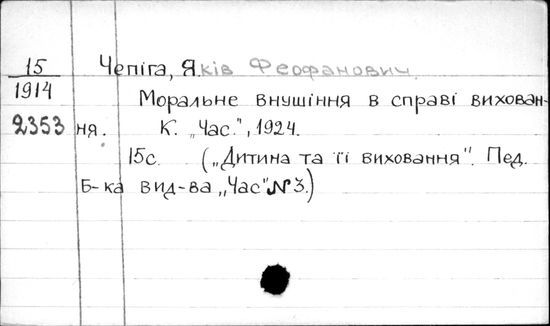 15 Чепіга, Яків Феофанович
1914 Моральне внушіння в справі вихован-
2353 ня. К. „Час.", 1924.
15с. („Дитина та її виховання". Пед.
Б-ка вид-ва „Час" № 3.)